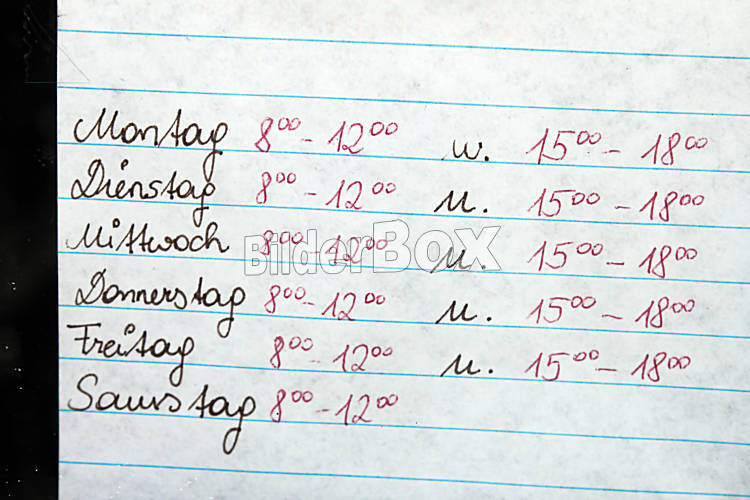 Montag 8⁰⁰ - 12⁰⁰ u. 15⁰⁰ - 18⁰⁰
Dienstag 8⁰⁰ - 12⁰⁰ u. 15⁰⁰ - 18⁰⁰
Mittwoch 8⁰⁰ - 12⁰⁰ u. 15⁰⁰ - 18⁰⁰
BilderBox
Donnerstag 8⁰⁰ - 12⁰⁰ u. 15⁰⁰ - 18⁰⁰
Freitag 8⁰⁰ - 12⁰⁰ u. 15⁰⁰ - 18⁰⁰
Samstag 8⁰⁰ - 12⁰⁰